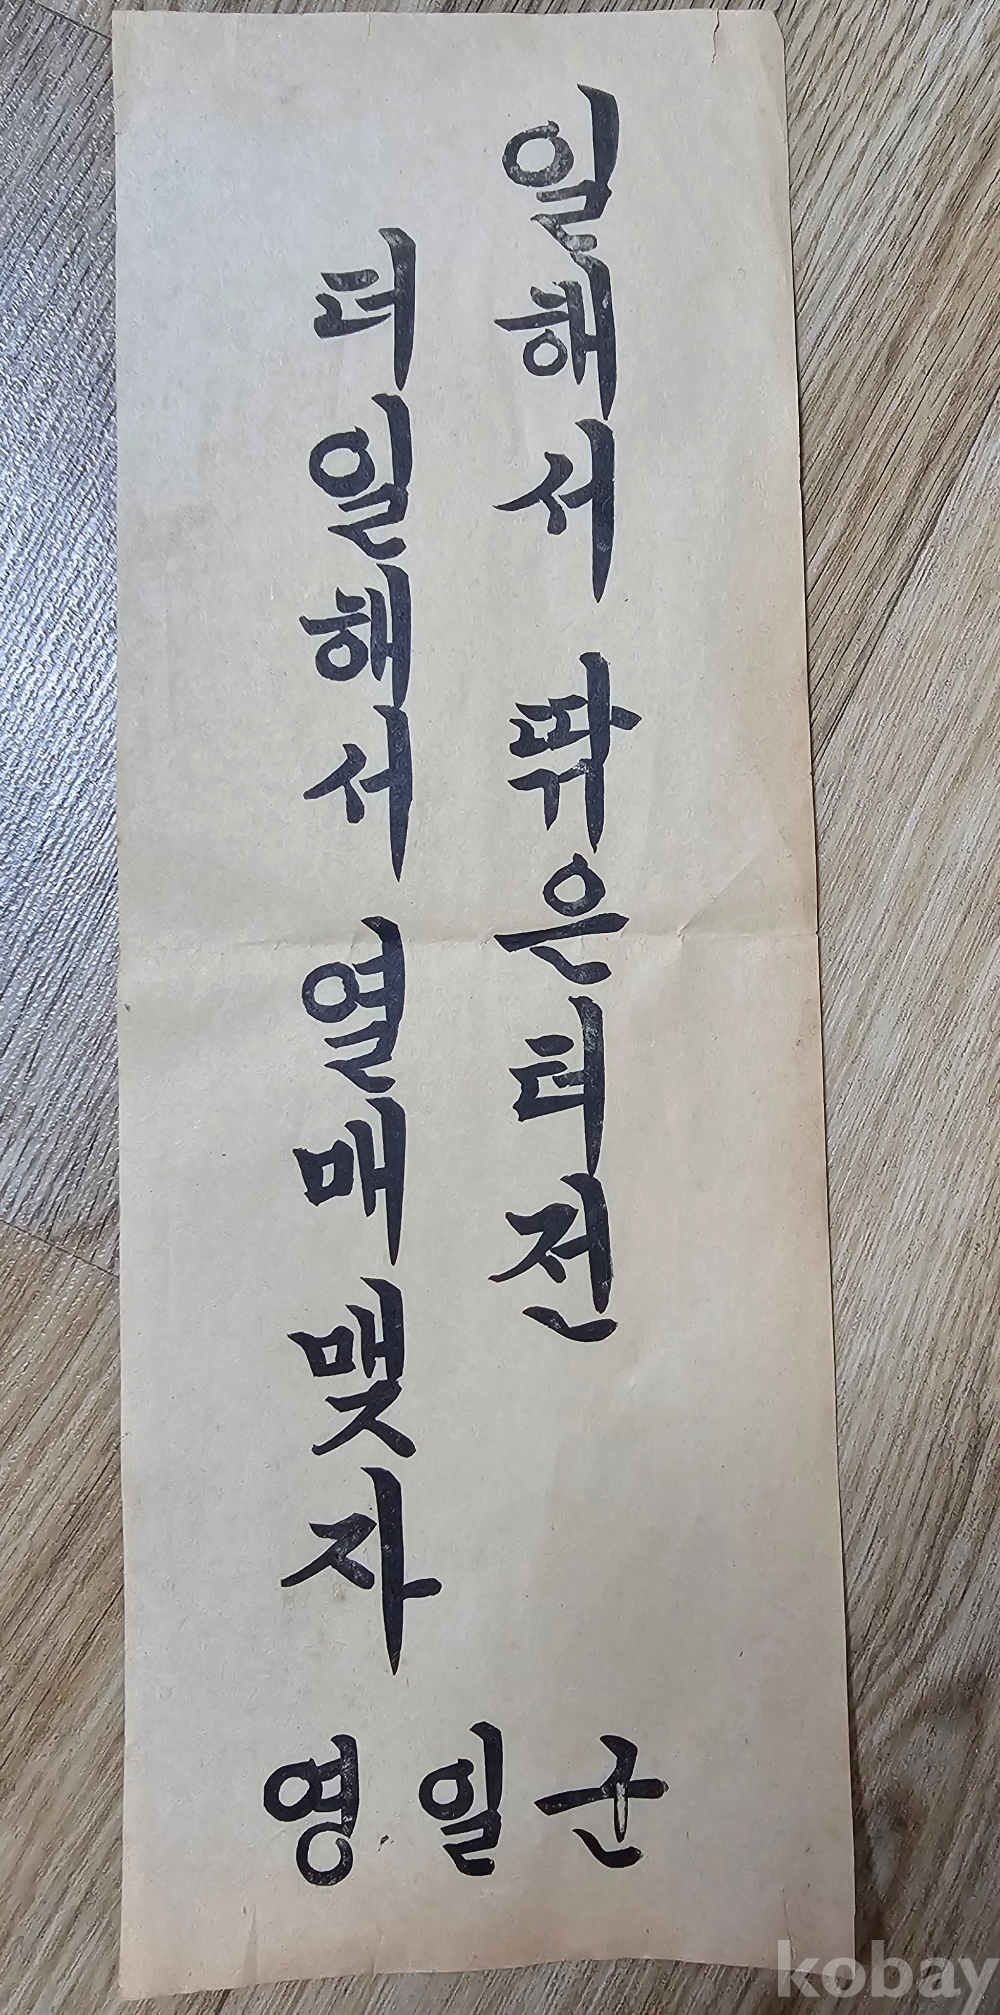 일해서 딲은터전
더일해서 열매맺자
영일군
kobay